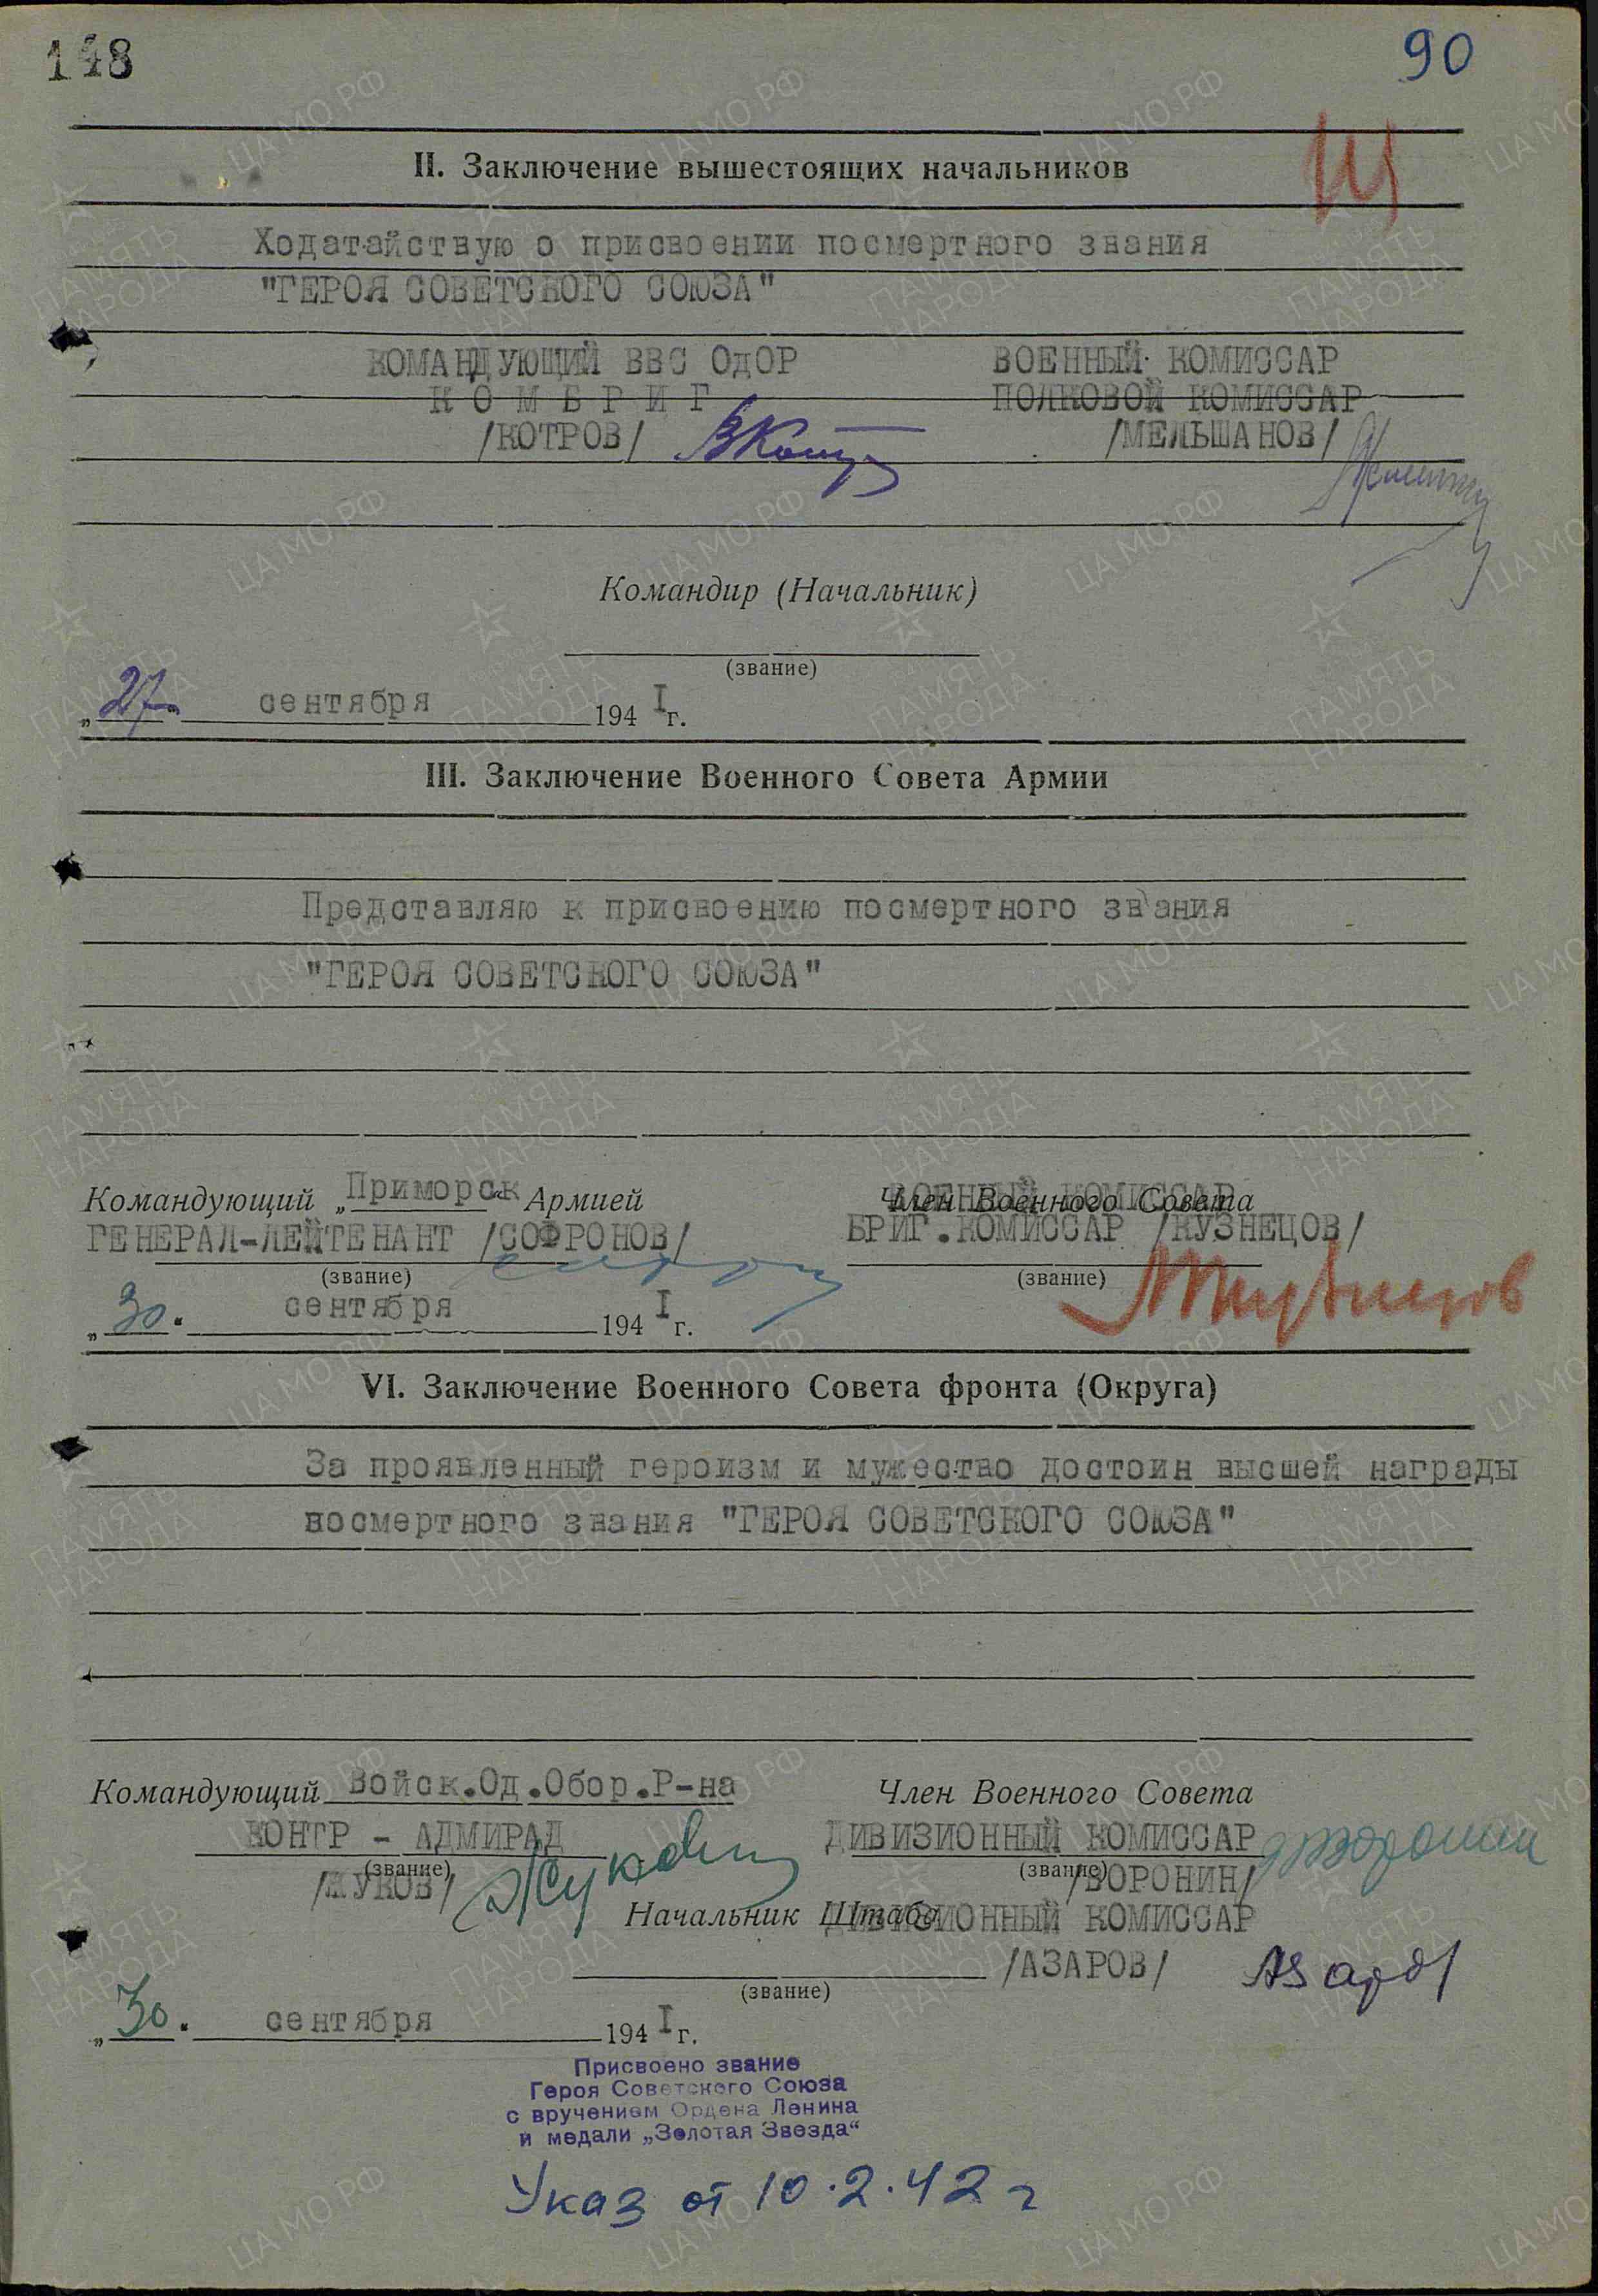 148
90
Щ
II. Заключение вышестоящих начальников
Ходатайствую о присвоении посмертного звания
"ГЕРОЯ СОВЕТСКОГО СОЮЗА"
КОМАНДУЮЩИЙ ВВС ОдОР ВОЕННЫЙ КОМИССАР
КОМБРИГ ПОЛКОВОЙ КОМИССАР
/КОТРОВ/ /МЕЛЬШАНОВ/
Командир (Начальник)
(звание)
„27" сентября 194 I г.
III. Заключение Военного Совета Армии
Представляю к присвоению посмертного звания
"ГЕРОЯ СОВЕТСКОГО СОЮЗА"
Командующий „Приморск" Армией Член Военного Совета
ВОЕННЫЙ КОМИССАР
ГЕНЕРАЛ-ЛЕЙТЕНАНТ /СОФРОНОВ/ БРИГ.КОМИССАР /КУЗНЕЦОВ/
(звание) (звание)
„30" сентября 194 I г.
VI. Заключение Военного Совета фронта (Округа)
За проявленный героизм и мужество достоин высшей награды
посмертного звания "ГЕРОЯ СОВЕТСКОГО СОЮЗА"
Командующий Войск.Од.Обор.Р-на Член Военного Совета
КОНТР - АДМИРАЛ ДИВИЗИОННЫЙ КОМИССАР
(звание) (звание)
/ЖУКОВ/ Жуков /ВОРОНИН/ Воронин
Начальник Штаба ДИВИЗИОННЫЙ КОМИССАР
/АЗАРОВ/ Азаров
(звание)
„30" сентября 194 I г.
Присвоено звание
Героя Советского Союза
с вручением Ордена Ленина
и медали „Золотая Звезда"
Указ от 10.2.42 г